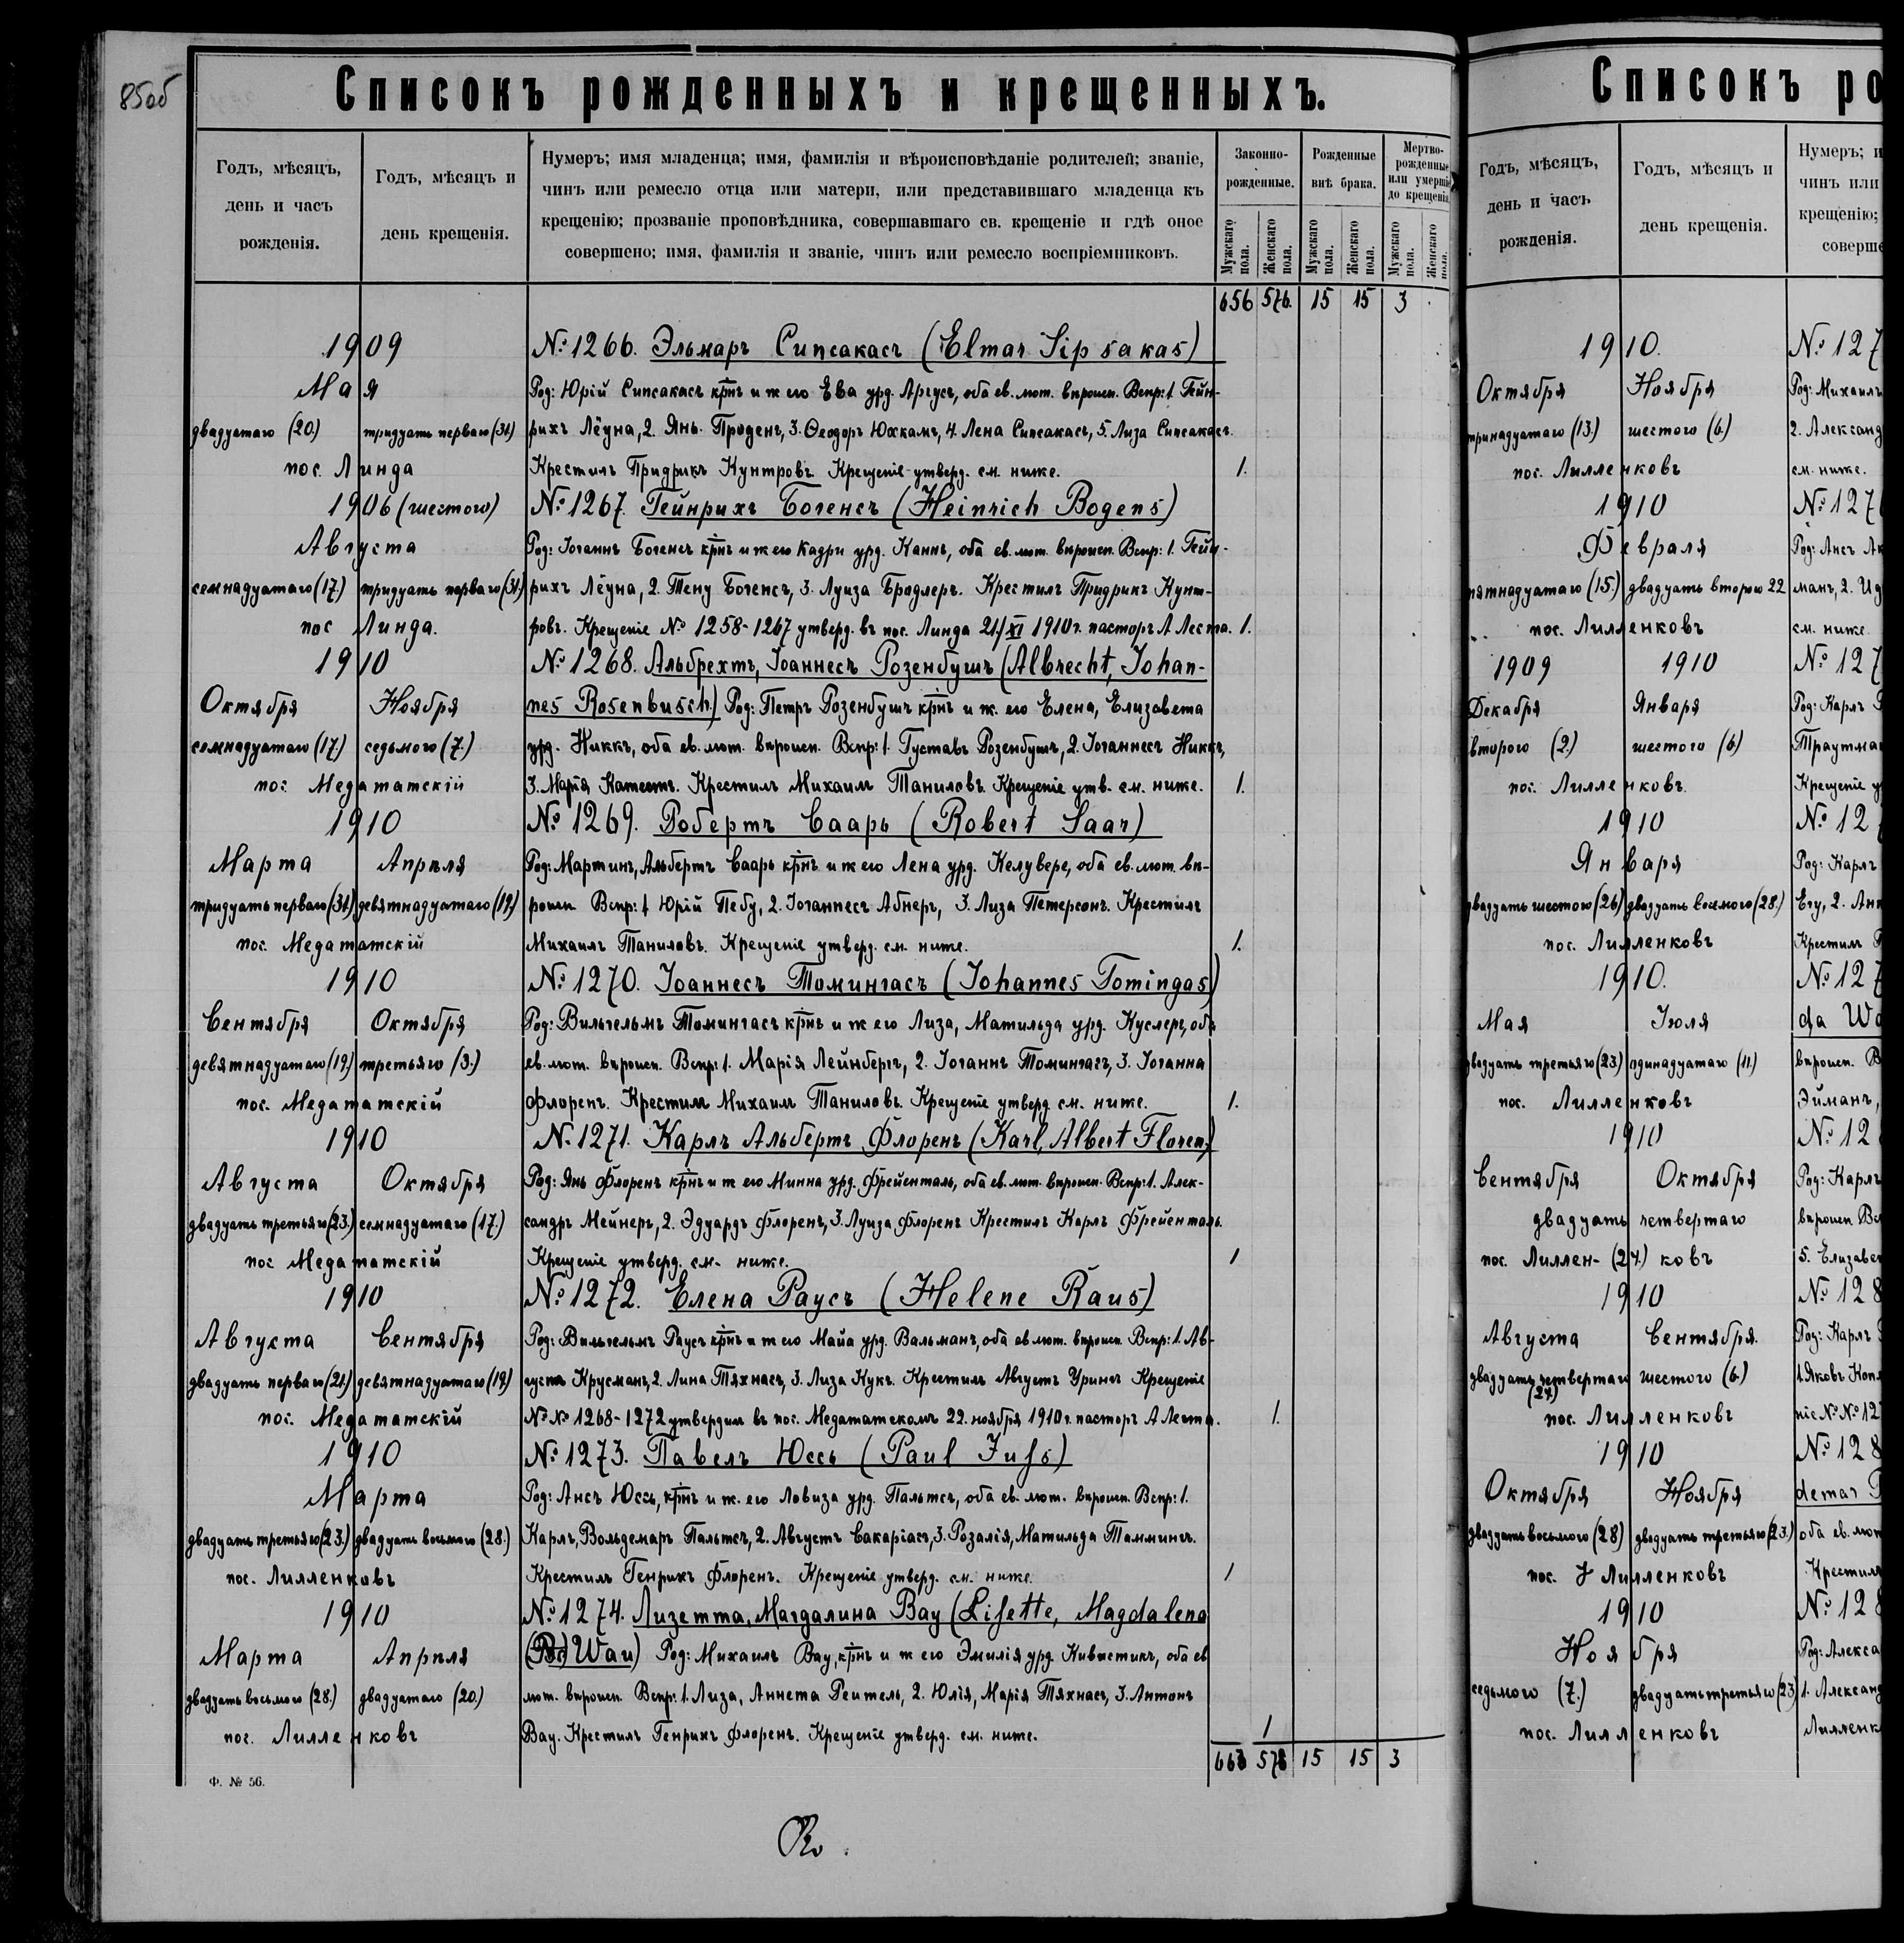 85об
Списокъ рожденныхъ и крещенныхъ.
Годъ, мѣсяцъ, день и часъ рожденія.
Годъ, мѣсяцъ и день крещенія.
Нумеръ; имя младенца; имя, фамилія и вѣроисповѣданіе родителей; званіе,
чинъ или ремесло отца или матери, или представившаго младенца къ
крещенію; прозваніе проповѣдника, совершавшаго св. крещеніе и гдѣ оное
совершено; имя, фамилія и званіе, чинъ или ремесло воспріемниковъ.
Законно-рожденные.
Рожденные внѣ брака.
Мертво-рожденные или умершіе до крещенія.
Мужскаго пола.
Женскаго пола.
Мужскаго пола.
Женскаго пола.
Мужскаго пола.
Женскаго пола.
656 576. 15 15 3
1909 №1266. Эльмаръ Сипсакасъ (Elmar Sipsakas)
Мая Род: Юрій Сипсакасъ крнъ и ж его Ева урд. Аргусъ, оба ев. лют. вѣроисп. Вспр: 1. Гейн-
двадцатаго (20.) тридцать перваго (31.) рихъ Лёуна, 2. Янъ Проденъ, 3. Ѳеодоръ Юхкамъ, 4. Лена Сипсакасъ, 5. Лиза Сипсакасъ.
пос. Линда Крестилъ Придрикъ Кунтровъ Крещеніе утверд. см. ниже. 1.
1906 (шестого) №1267. Гейнрихъ Богенсъ (Heinrich Bogens)
Августа Род: Іоганнъ Богенсъ крнъ и ж его Кадри урд. Каннъ, оба ев. лют. вѣроисп. Вспр: 1. Гейн-
семнадцатаго (17.) тридцать перваго (31.) рихъ Лёуна, 2. Тену Богенсъ, 3. Луиза Бродлеръ. Крестилъ Придрикъ Кунт-
пос Линда. ровъ. Крещеніе № 1258-1267 утверд. въ пос. Линда 21/XI 1910 г. пасторъ А Леста. 1.
1910 №1268. Альбрехтъ, Іоаннесъ Розенбушъ (Albrecht, Johan-
Октября Ноября nes Rosenbusch.) Род: Петръ Розенбушъ крнъ и ж. его Елена, Елизавета
семнадцатаго (17.) седьмого (7.) урд. Никкъ, оба ев. лют. вѣроисп. Вспр: 1. Густавъ Розенбушъ, 2. Іоганнесъ Никкъ,
пос. Медаматскій 3. Марія Катестъ. Крестилъ Михаилъ Таниловъ. Крещеніе утв. см. ниже. 1.
1910 №1269. Робертъ Сааръ (Robert Saar)
Марта Апрѣля Род: Мартинъ, Альбертъ Сааръ крнъ и ж его Лена урд. Келувере, оба ев. лют. вѣ-
тридцать перваго (31.) девятнадцатаго (19.) роисп Вспр: 1 Юрій Пебу, 2. Іоганнесъ Абнеръ, 3. Лиза Петерсонъ. Крестилъ
пос. Медаматскій Михаилъ Таниловъ. Крещеніе утверд. см. ниже. 1.
1910 №1270. Іоаннесъ Томингасъ (Johannes Tomingas)
Сентября Октября Род: Вильгельмъ Томингасъ крнъ и ж его Лиза, Матильда урд. Куслеръ, оба
девятнадцатаго (19.) третьяго (3.) ев. лют. вѣроисп. Вспр: 1. Марія Лейнбергъ, 2. Іоганнъ Томингасъ, 3. Іоганна
пос. Медаматскій Флоренъ. Крестилъ Михаилъ Таниловъ. Крещеніе утверд. см. ниже. 1.
1910 №1271. Карлъ Альбертъ Флоренъ (Karl, Albert Floren)
Августа Октября Род: Янъ Флоренъ крнъ и ж его Минна урд. Фрейенталь, оба ев. лют. вѣроисп. Вспр: 1. Алек-
двадцать третьяго (23.) семнадцатаго (17.) сандръ Мейнеръ, 2. Эдуардъ Флоренъ, 3. Луиза Флоренъ Крестилъ Карлъ Фрейенталь.
пос Медаматскій Крещеніе утверд. см. ниже. 1
1910 №1272. ЕленаРаусъ (Helene Raus)
Августа Сентября Род: Вильгельмъ Раусъ крнъ и ж его Майа урд. Вальманъ, оба ев лют. вѣроисп. Вспр: 1. Ав-
двадцать перваго (21.) девятнадцатаго (19.) густъ Крусманъ, 2. Лина Тяхнасъ, 3. Лиза Кукъ. Крестилъ Августъ Уринсъ Крещеніе
пос. Медаматскій №№ 1268-1272 утвердилъ въ пос. Медаматскомъ 22. ноября 1910 г. пасторъ А Леста. 1.
1910 №1273. Павелъ Юссь (Paul Juſs)
Марта Род: Ансъ Юссь, крнъ и ж. его Ловиза урд. Пальтсъ, оба ев. лют. вѣроисп. Вспр: 1.
двадцать третьяго (23.) двадцать восьмого (28.) Карлъ, Вольдемаръ Пальтсъ, 2. Августъ Сакаріасъ, 3. Розалія, Матильда Таммингъ.
пос. Лилленковъ Крестилъ Генрихъ Флоренъ. Крещеніе утверд. см. ниже. 1
1910 №1274. Лизетта, Магдалина Вау (Liſette, Magdalena
Марта Апрѣля Wau) Род: Михаилъ Вау, крнъ и ж его Эмилія урд. Кивистикъ, оба ев
двадцать восьмого (28.) двадцатаго (20.) лют. вѣроисп. Вспр: 1. Лиза, Аннета Рейтель, 2. Юлія, Марія Тяхнасъ, 3. Антонъ
пос. Лилленковъ Вау. Крестилъ Генрихъ Флоренъ. Крещеніе утверд. см. ниже. 1
663 578 15 15 3
Ф. № 56.
Списокъ ро
Годъ, мѣсяцъ, день и часъ рожденія.
Годъ, мѣсяцъ и день крещенія.
Нумеръ; и
чинъ или
крещенію;
соверше
1910. № 127
Октября Ноября Род: Михаилъ
тринадцатаго (13.) шестого (6.) 2. Александ
пос. Лилленковъ см. ниже.
1910 №127
Февраля Род: Ансъ Ак
пятнадцатаго (15.) двадцать второго 22 манъ, 2. Ид
пос. Лилленковъ см. ниже
1909 1910 №127
Декабря Января Род: Карлъ
второго (2.) шестого (6.) Траутма
пос. Лилленковъ. Крещеніе у
1910 №12
Января Род: Карлъ
двадцать шестого (26) двадцать восьмого (28.) Егу, 2. Анн
пос. Лилленковъ Крестилъ
1910. №127
Мая Іюля da Wa
двадцать третьяго (23.) одинадцатаго (11.) вѣроисп. В
пос. Лилленковъ Эйманъ,
1910 №12
Сентября Октября Род: Карлъ
двадцать четвертаго вѣроисп. Вс
пос. Лиллен- (24.) ковъ 5. Елизавет
1910 №128
Августа Сентября. Род: Карлъ
двадцать четвертаго (24.) шестого (6.) 1. Яковъ Коп
пос. Лилленковъ ніе №№12
1910 №128
Октября Ноября demar
двадцать восьмого (28) двадцать третьяго (23.) оба ев. лют
пос. Лилленковъ Крестилъ
1910 №128
Ноября Род: Алекса
седьмого (7.) двадцать третьяго (23) 1. Александ
пос. Лилленковъ Лилленк